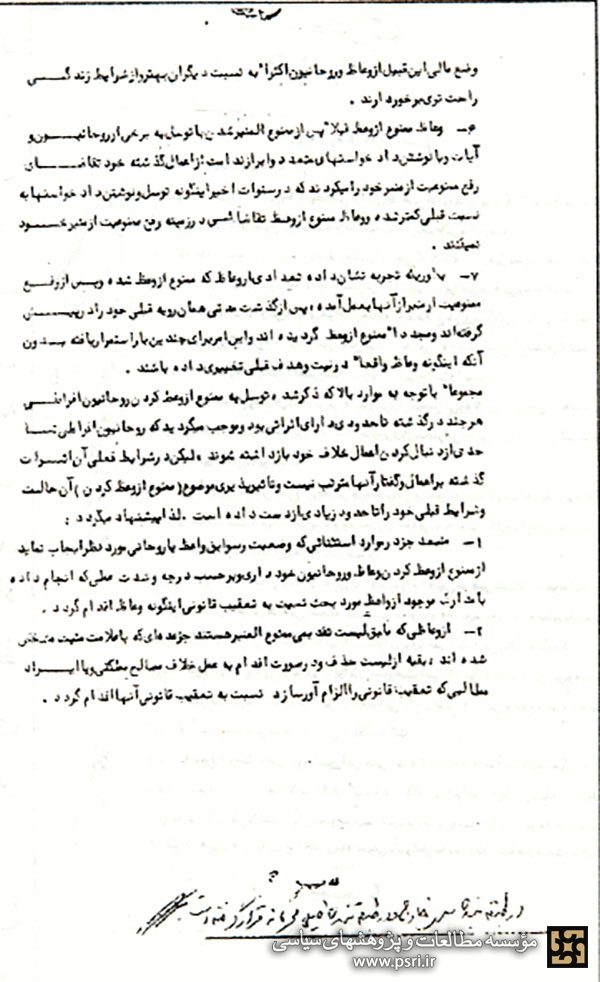 وضع مالی این قبیل از وعاظ و روحانیون اکثرا" به نسبت دیگران بهتر و از شرایط زندگـــی
راحت تری برخوردارند .
۶ـ وعاظ ممنوع از وعظ قبلا" پس از ممنوع المنبر شدن با توسل به برخی از روحانیـــون و
آیات و یا نوشتن داد خواستهای متعدد و ابراز ندامت از اعمال گذشته خود تقاضـــای
رفع ممنوعیت از منبر خود را میکردند که در سنوات اخیر اینگونه توسل و نوشتن داد خواستها به
نسبت قبلی کمتر شده و وعاظ ممنوع از وعظ تقاضائی در زمینه رفع ممنوعیت از منبر خـــود
نمیکنند .
۷ـ تجربه نشان داده تعدادی از وعاظ که ممنوع از وعظ شده و پس از رفـــع
ممنوعیت از منبر از آنها بعمل آمده ، پس از گذشت مدتی همان رویه قبلی خود را در پیـــش
گرفته اند و مجددا" ممنوع از وعظ گردیده اند و این امر برای چندین بار استمرار یافته بـــدون
آنکه اینگونه وعاظ واقعا" در نیت و هدف قبلی تغییری داده باشند .
مجموعا" با توجه به موارد بالا که ذکر شد ، توسل به ممنوع از وعظ کردن روحانیون افراطـــی
هر چند در گذشته تا حدودی دارای اثراتی بود و موجب میگردید که روحانیون افراطی تـــا
حدی از دنبال کردن اعمال خلاف خود بازداشته شوند ، لیکن در شرایط فعلی آن اثـــرات
گذشته بر اعمال و گفتار آنها مترتب نیست و تاثیر پذیری موضوع ( ممنوع از وعظ کردن ) آن حالت
و شرایط قبلی خود را تا حدود زیادی از دست داده است . لذا پیشنهاد میگردد :
۱ـ جز در موارد استثنائی که وضعیت و سوابق واعظ یا روحانی مورد نظر ایجاب نماید
از ممنوع از وعظ کردن وعاظ و روحانیون خودداری و بر حسب درجه و شدت عملی که انجام داده
با مدارک موجود از واعظ مورد بحث نسبت به تعقیب قانونی اینگونه وعاظ اقدام گردد .
۲ـ از وعاظی که طبق لیست تقدیمی ممنوع المنبر هستند جز عده ای که با علامت مثبت مشخص
شده اند ، بقیه از لیست حذف و در صورت اقدام به عمل خلاف مصالح مملکتی و یا ایـــراد
مطالبی که تعقیب قانونی را الزام آور سازد نسبت به تعقیب قانونی آنها اقدام گردد .
قرار گرفته است
مؤسسه مطالعات و پژوهشهای سیاسی
www.psri.ir